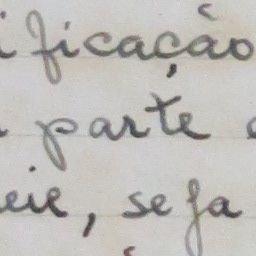 ificação
parte
eie, seja